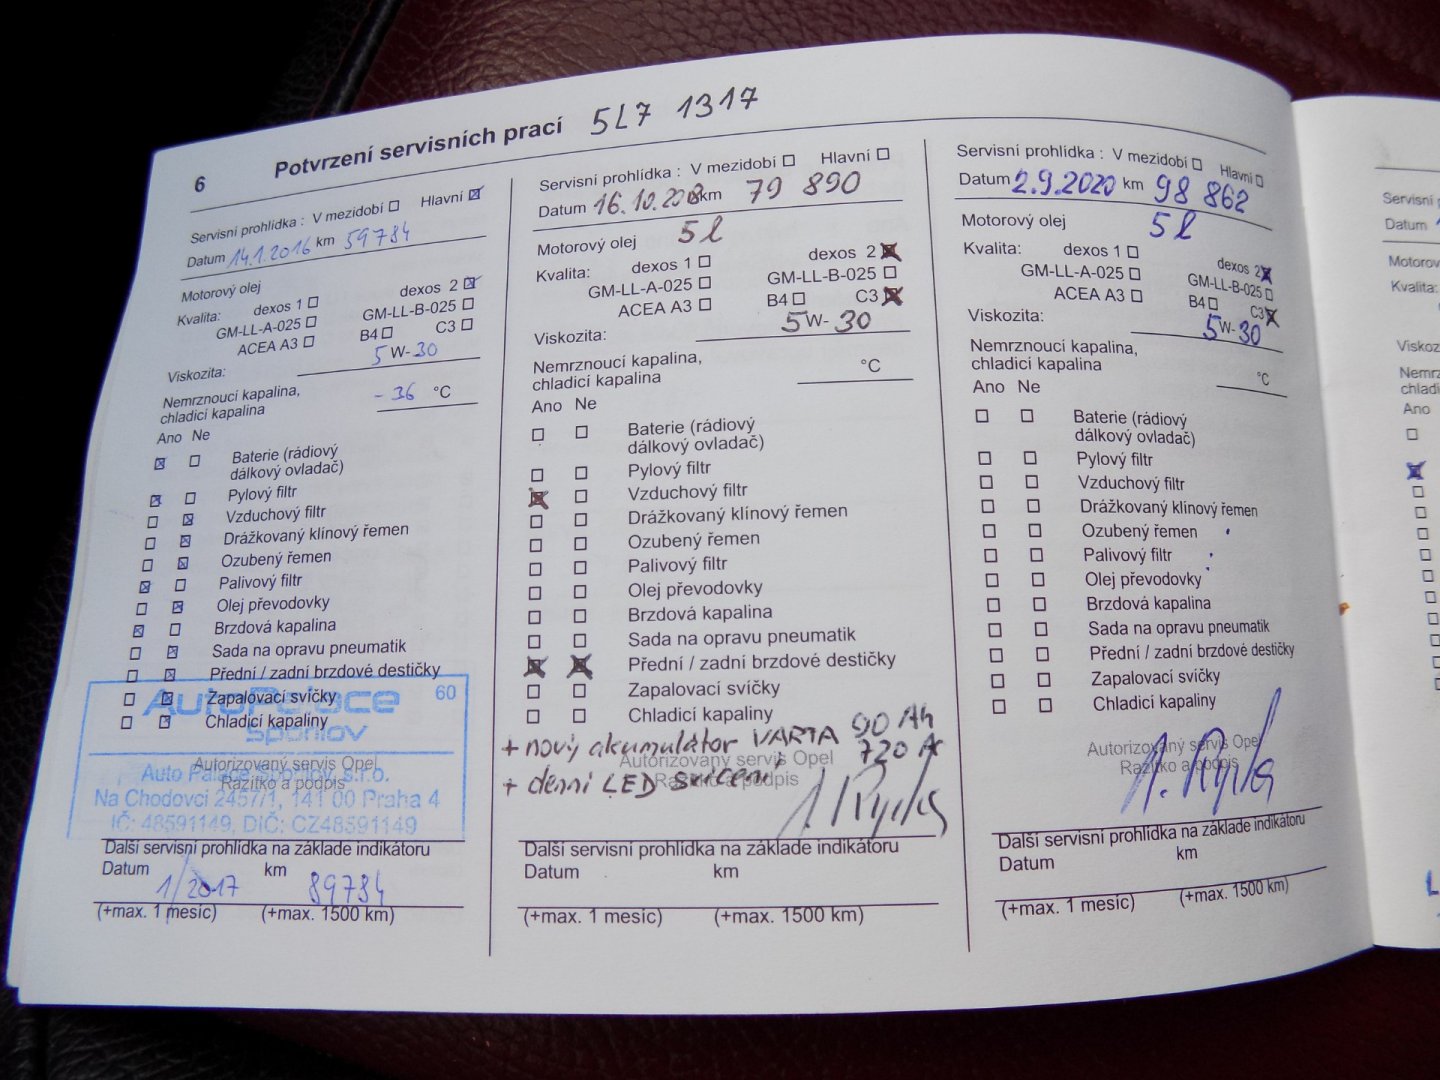 6 Potvrzení servisních prací 5L7 1317
Servisní prohlídka : V mezidobí Hlavní
Datum 14.1.2016 km 59784
Motorový olej
Kvalita: dexos 1 dexos 2
GM-LL-A-025 GM-LL-B-025
ACEA A3 B4 C3
Viskozita: 5 W- 30
Nemrznoucí kapalina,
chladicí kapalina - 36 °C
Ano Ne
Baterie (rádiový
dálkový ovladač)
Pylový filtr
Vzduchový filtr
Drážkovaný klínový řemen
Ozubený řemen
Palivový filtr
Olej převodovky
Brzdová kapalina
Sada na opravu pneumatik
Přední / zadní brzdové destičky
Zapalovací svíčky
Chladicí kapaliny
AutoPalace 60
Spořilov
Autorizovaný servis Opel
Razítko a podpis
Auto Palace Spořilov, s.r.o.
Na Chodovci 2457/1, 141 00 Praha 4
IČ: 48591149, DIČ: CZ48591149
Další servisní prohlídka na základě indikátoru
Datum 1/2017 km 89784
(+max. 1 mesíc) (+max. 1500 km)
Servisní prohlídka : V mezidobí Hlavní
Datum 16.10.2018 km 79 890
Motorový olej 5 l
Kvalita: dexos 1 dexos 2
GM-LL-A-025 GM-LL-B-025
ACEA A3 B4 C3
Viskozita: 5 W- 30
Nemrznoucí kapalina,
chladicí kapalina °C
Ano Ne
Baterie (rádiový
dálkový ovladač)
Pylový filtr
Vzduchový filtr
Drážkovaný klínový řemen
Ozubený řemen
Palivový filtr
Olej převodovky
Brzdová kapalina
Sada na opravu pneumatik
Přední / zadní brzdové destičky
Zapalovací svíčky
Chladicí kapaliny
+ nový akumulátor VARTA 90 Ah
720 A
Autorizovaný servis Opel
+ denní LED svícení
Razítko a podpis
Další servisní prohlídka na základě indikátoru
Datum km
(+max. 1 mesíc) (+max. 1500 km)
Servisní prohlídka : V mezidobí Hlavní
Datum 2.9.2020 km 98 862
Motorový olej 5 l
Kvalita: dexos 1 dexos 2
GM-LL-A-025 GM-LL-B-025
ACEA A3 B4 C3
Viskozita: 5 W- 30
Nemrznoucí kapalina,
chladicí kapalina °C
Ano Ne
Baterie (rádiový
dálkový ovladač)
Pylový filtr
Vzduchový filtr
Drážkovaný klínový řemen
Ozubený řemen
Palivový filtr
Olej převodovky
Brzdová kapalina
Sada na opravu pneumatik
Přední / zadní brzdové destičky
Zapalovací svíčky
Chladicí kapaliny
Autorizovaný servis Opel
Razítko a podpis
Další servisní prohlídka na základě indikátoru
Datum km
(+max. 1 mesíc) (+max. 1500 km)
Servisní
Datum
Motorov
Kvalita:
Viskoz
Nemrz
chladi
Ano